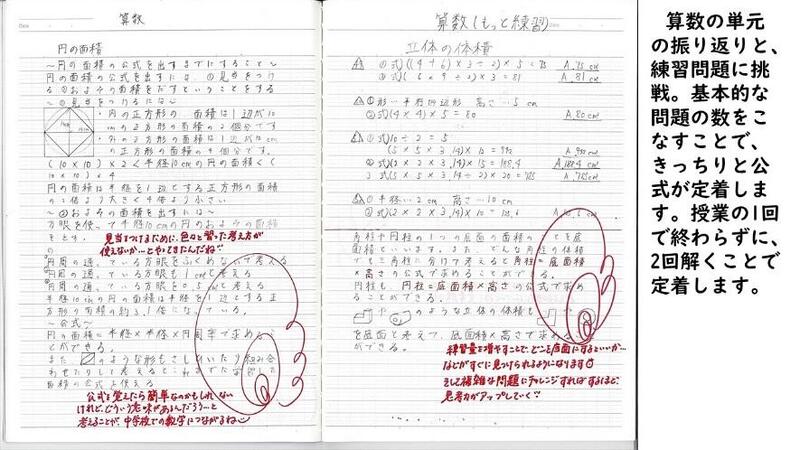 算数
円の面積
～円の面積の公式を出すまでにすること～
円の面積の公式を出すには、①見当をつけ
る ②およその面積をだすということをする
～①見当をつけるには～
円の正方形の面積は1辺が10
cmの正方形の面積の2個分です
の正方形の面積は1辺が10cm
の正方形の面積の4個分です。
(10×10)×2<半径10cmの円の面積<(
10×10)×4
円の面積は半径を1辺とする正方形の面積
の2倍より大きく4倍より小さい
～②およその面積を出すには～
方眼を使って半径10cmの円のおよその面積
を
見当をつけるために、色々と習った考え方が
使えないか…とやってきたんだね
円周の通っている方眼をふくめないで考える
円周の通っている方眼も1cm と考える
円周の通っている方眼を0.5cm と考える
半径10cmの円の面積は半径を1辺とする正
方形の面積の約3.1倍になっている。
～公式～
円の面積＝半径×半径×円周率で求めるこ
とができる。
また のような形もさしひいたり組み合
わせたりして考えると
面積の公式を使える
公式を覚えたら簡単なのかもしれない
けれど、どういう意味があるんだろう…と
考えることが、中学校での数学につながるね
算数(もっと練習)
立体の体積
①式)((4+6)×3÷2)×5=75
A.75cm
②式(6×9÷2)×3=81
A.81cm
①形…平行四辺形 高さ…5cm
②式)(4×4)×5=80
A.80cm
①式)10÷2=5
A.785cm
①半径…2cm 高さ…10cm
角柱や円柱の1つの底面の面積のことを底
面積といいます。また、どんな角柱の体積
でも三角柱に分けて考えると角柱＝底面積
×高さの公式で求めることができる。
円柱も、円柱＝底面積×高さの公式で求め
ることができる。
のような立体の体積も
を底面と考えて、底面積×高さで求める
ができる。
練習量を増やすことで、どこを底面にするといいか…
などがすぐに見つけられるようになります
そして複雑な問題にチャレンジすればするほど、
思考力がアップしていく
算数の単元
の振り返りと、
練習問題に挑
戦。基本的な
問題の数をこ
なすことで、
きっちりと公
式が定着しま
す。授業の1回
で終わらずに、
2回解くことで
定着します。